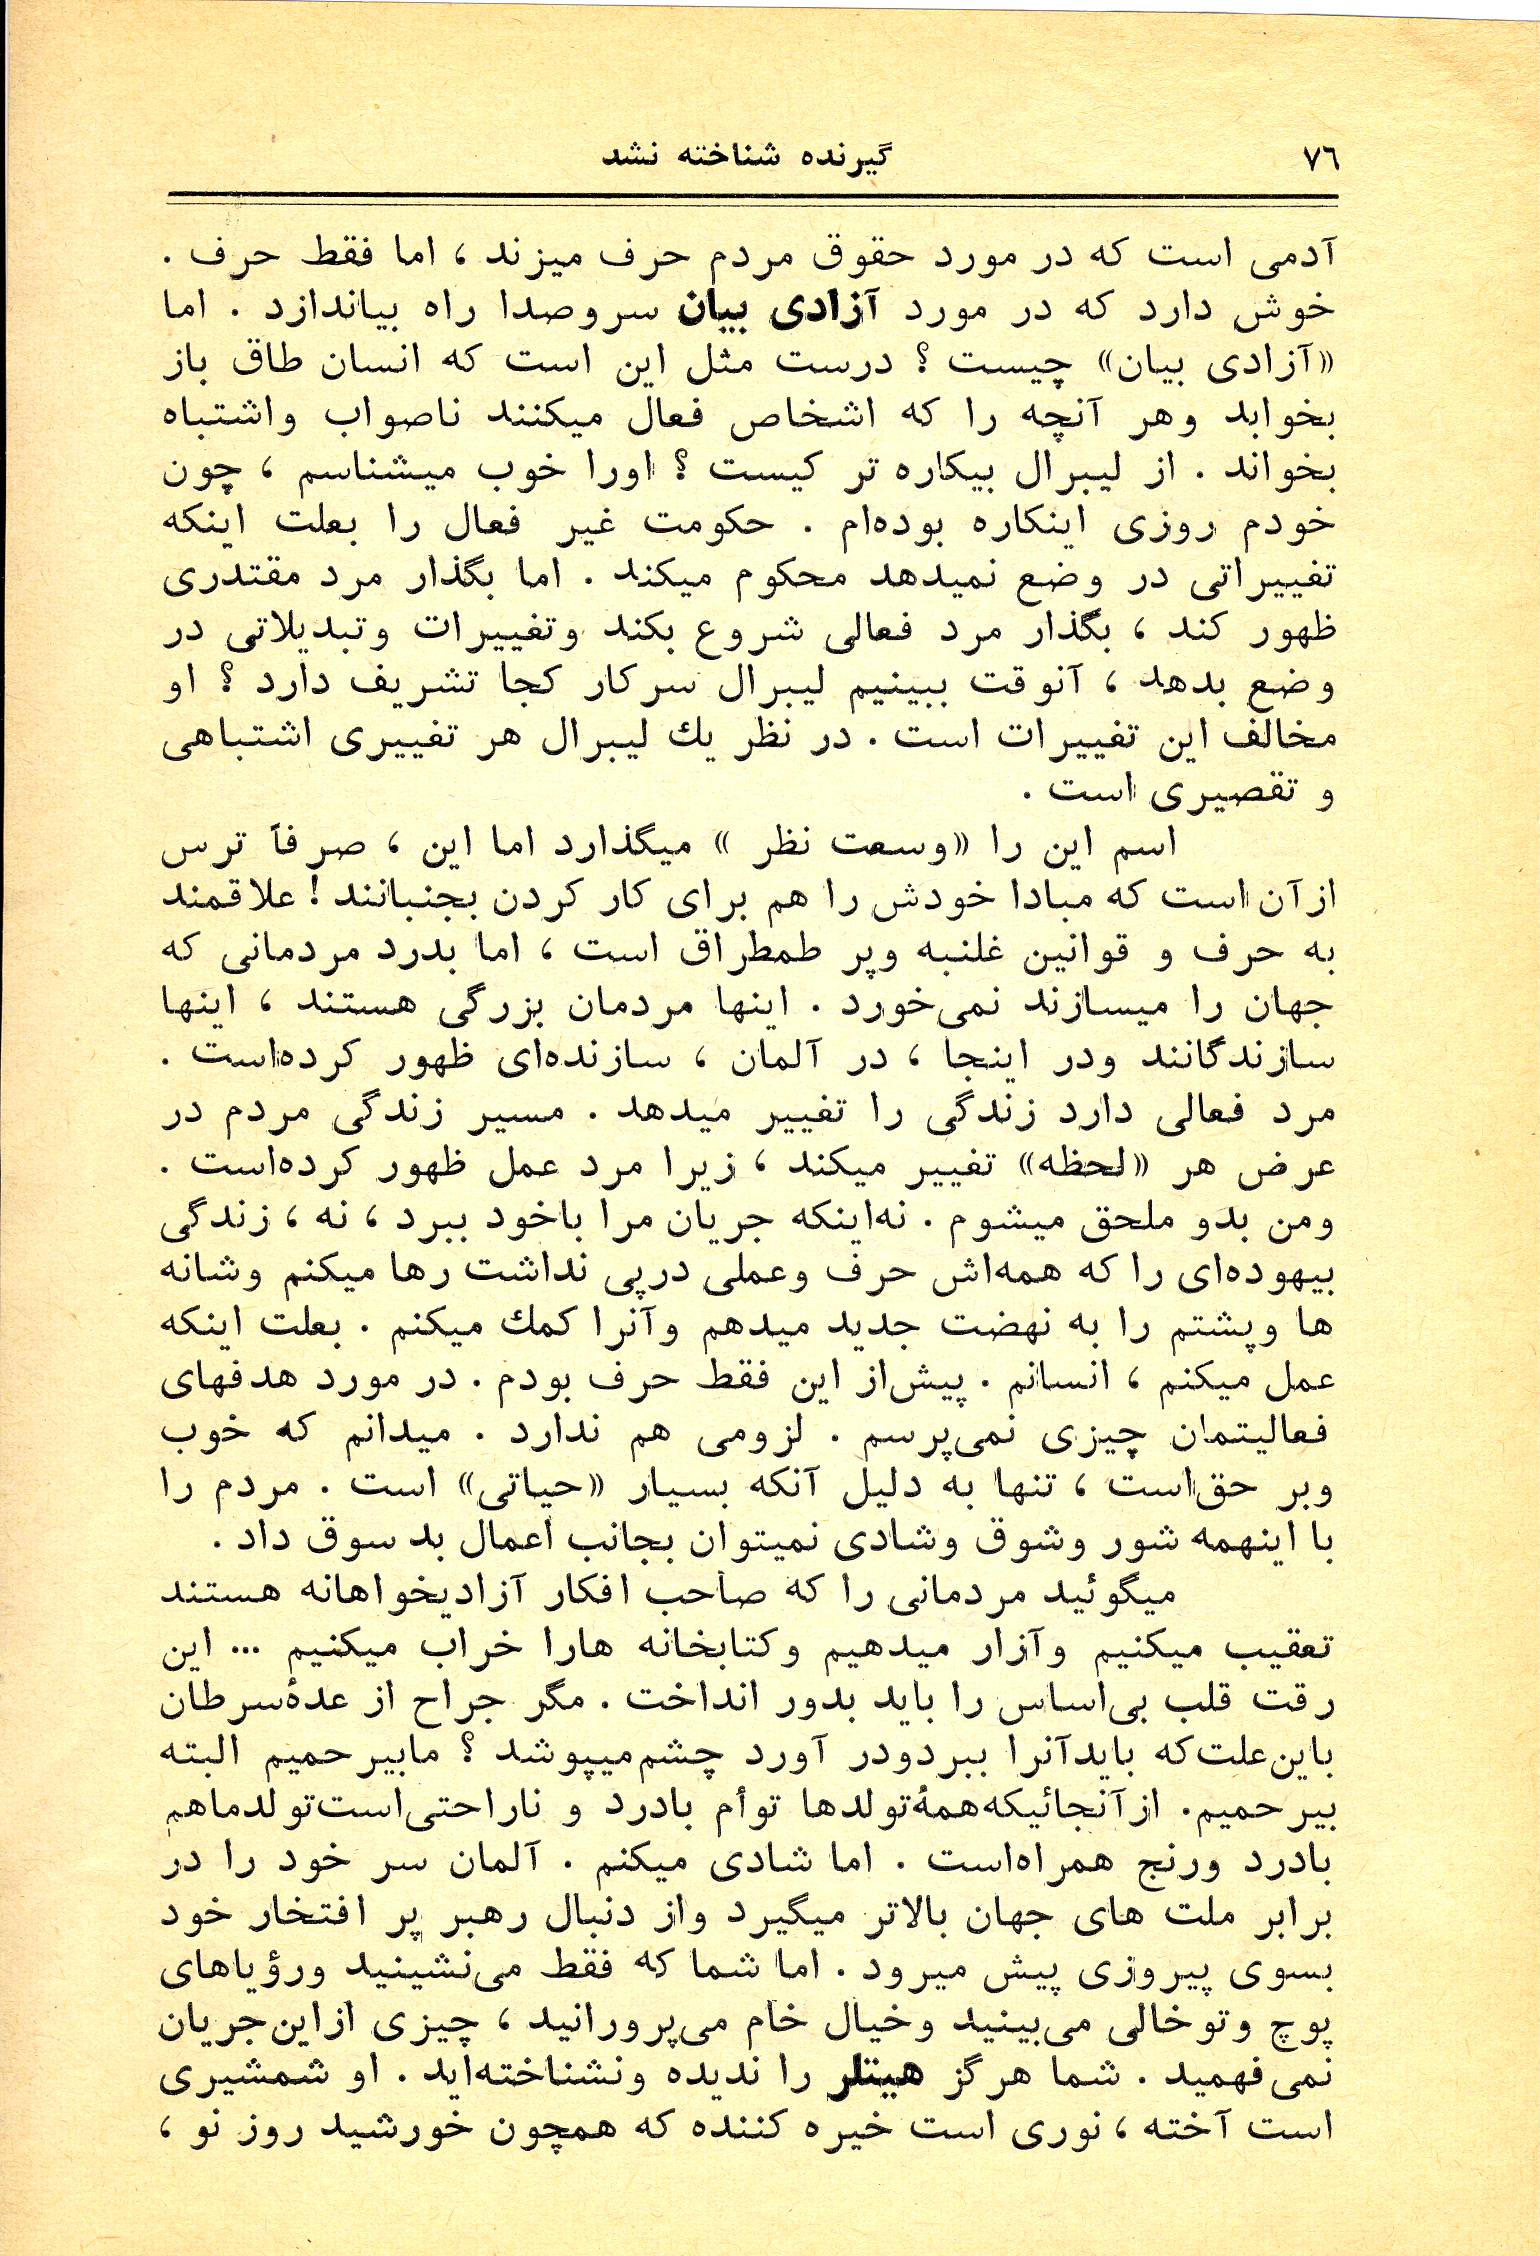 ٧٦
گیرنده شناخته نشد
آدمی است که در مورد حقوق مردم حرف میزند ، اما فقط حرف .
خوش دارد که در مورد آزادی بیان سروصدا راه بیاندازد . اما
«آزادی بیان» چیست ؟ درست مثل این است که انسان طاق باز
بخوابد وهر آنچه را که اشخاص فعال میکنند ناصواب واشتباه
بخواند . از لیبرال بیکاره تر کیست ؟ اورا خوب میشناسم ، چون
خودم روزی اینکاره بوده‌ام . حکومت غیر فعال را بعلت اینکه
تغییراتی در وضع نمیدهد محکوم میکند . اما بگذار مرد مقتدری
ظهور کند ، بگذار مرد فعالی شروع بکند وتغییرات وتبدیلاتی در
وضع بدهد ، آنوقت ببینیم لیبرال سرکار کجا تشریف دارد ؟ او
مخالف این تغییرات است . در نظر یك لیبرال هر تغییری اشتباهی
و تقصیری است .
اسم این را «وسعت نظر » میگذارد اما این ، صرفاً ترس
ازآن است که مبادا خودش را هم برای کار کردن بجنبانند ! علاقمند
به حرف و قوانین غلنبه وپر طمطراق است ، اما بدرد مردمانی که
جهان را میسازند نمی‌خورد . اینها مردمان بزرگی هستند ، اینها
سازندگانند ودر اینجا ، در آلمان ، سازنده‌ای ظهور کرده‌است .
مرد فعالی دارد زندگی را تغییر میدهد . مسیر زندگی مردم در
عرض هر «لحظه» تغییر میکند ، زیرا مرد عمل ظهور کرده‌است .
ومن بدو ملحق میشوم . نه‌اینکه جریان مرا باخود ببرد ، نه ، زندگی
بیهوده‌ای را که همه‌اش حرف وعملی درپی نداشت رها میکنم وشانه
ها وپشتم را به نهضت جدید میدهم وآنرا کمك میکنم . بعلت اینکه
عمل میکنم ، انسانم . پیش‌از این فقط حرف بودم . در مورد هدفهای
فعالیتمان چیزی نمی‌پرسم . لزومی هم ندارد . میدانم که خوب
وبر حق‌است ، تنها به دلیل آنکه بسیار «حیاتی» است . مردم را
با اینهمه شور وشوق وشادی نمیتوان بجانب اعمال بد سوق داد .
میگوئید مردمانی را که صاحب افکار آزادیخواهانه هستند
تعقیب میکنیم وآزار میدهیم وکتابخانه هارا خراب میکنیم ... این
رقت قلب بی‌اساس را باید بدور انداخت . مگر جراح از غدهٔ‌سرطان
باین‌علت‌که بایدآنرا ببردودر آورد چشم‌میپوشد ؟ مابیرحمیم البته
بیرحمیم. ازآنجائیکه‌همهٔ‌تولدها توأم بادرد و ناراحتی‌است‌تولدماهم
بادرد ورنج همراه‌است . اما شادی میکنم . آلمان سر خود را در
برابر ملت های جهان بالاتر میگیرد واز دنبال رهبر پر افتخار خود
بسوی پیروزی پیش میرود . اما شما که فقط می‌نشینید ورؤیاهای
پوچ وتوخالی می‌بینید وخیال خام می‌پرورانید ، چیزی ازاین‌جریان
نمی‌فهمید . شما هرگز هیتلر را ندیده ونشناخته‌اید . او شمشیری
است آخته ، نوری است خیره کننده که همچون خورشید روز نو ،